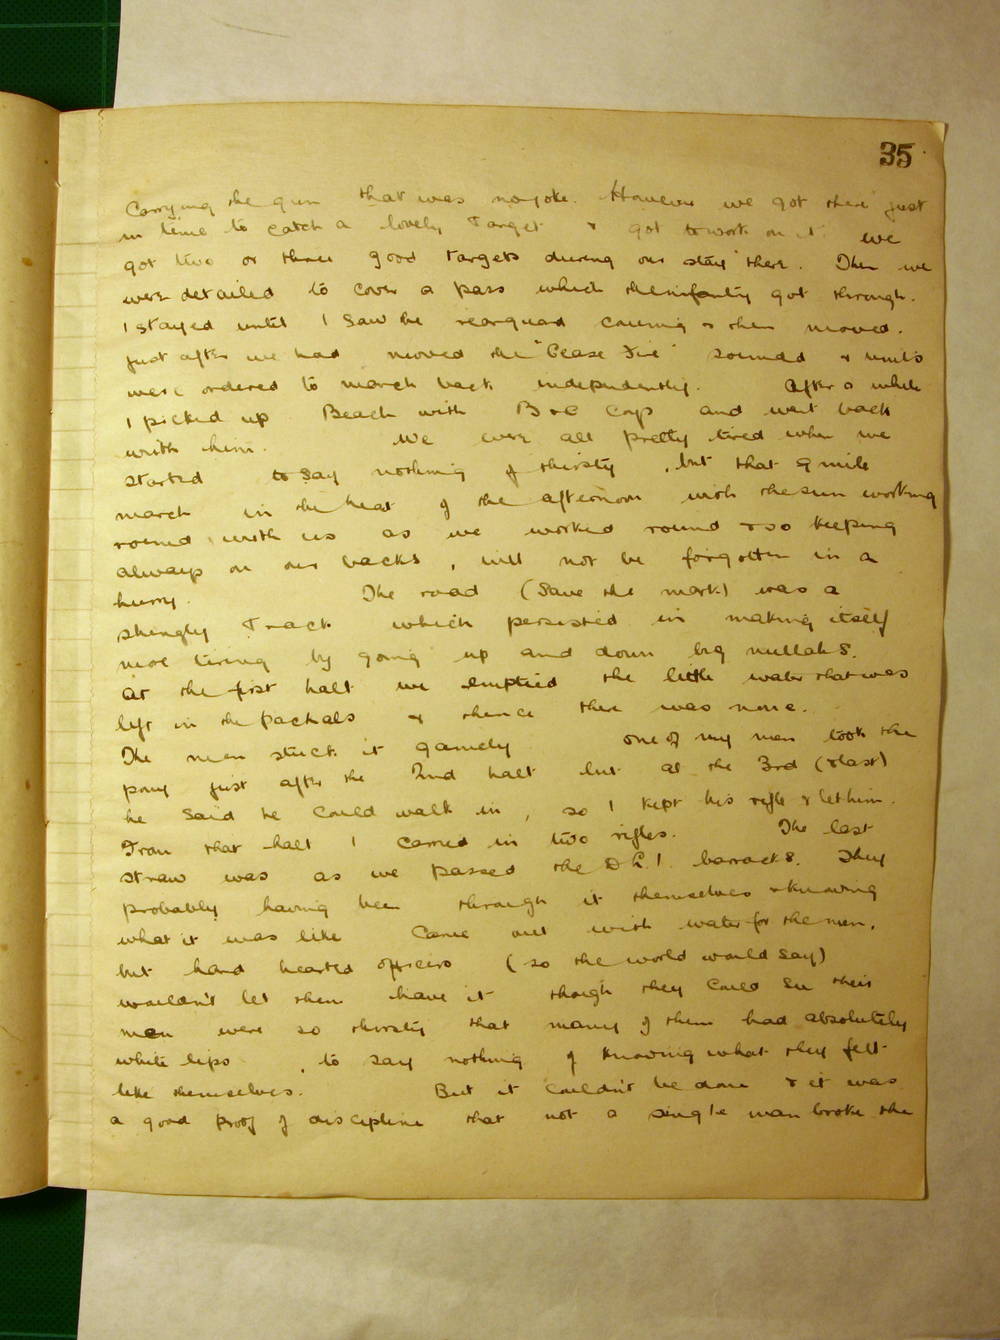 35
Carrying the gun that was no joke. However we got there just
in time to catch a lovely Target & got to work on it. We
got two or three good targets during our stay there. Then we
were detailed to cover a pass which the infantry got through.
I stayed until I saw the rearguard coming & then moved.
Just after we had moved the "Cease Fire" sounded & units
were ordered to march back independently. After a while
I picked up Beach with B & C Coys and went back
with him. We were all pretty tired when we
started to say nothing of thirsty, but that 9 mile
march in the heat of the afternoon with the sun working
round with us as we worked round & so keeping
always on our backs, will not be forgotten in a
hurry. The road (Save the mark) was a
shingly Track which persisted in making itself
more tiring by going up and down big nullahs.
At the first halt we emptied the little water that was
left in the packals & thence there was none.
The men stuck it gamely one of my men took the
pony just after the 2nd halt but at the 3rd (& last)
he said he could walk in, so I kept his rifle & let him.
From that halt I carried in two rifles. The last
straw was as we passed the D.L.I. barracks. They
probably having been through it themselves & knowing
what it was like came out with water for the men,
but hard hearted officers (so the world would say)
wouldn't let them have it though they could see their
men were so thirsty that many of them had absolutely
white lips, to say nothing of knowing what they felt
like themselves. But it couldn't be done & it was
a good proof of discipline that not a single man broke the